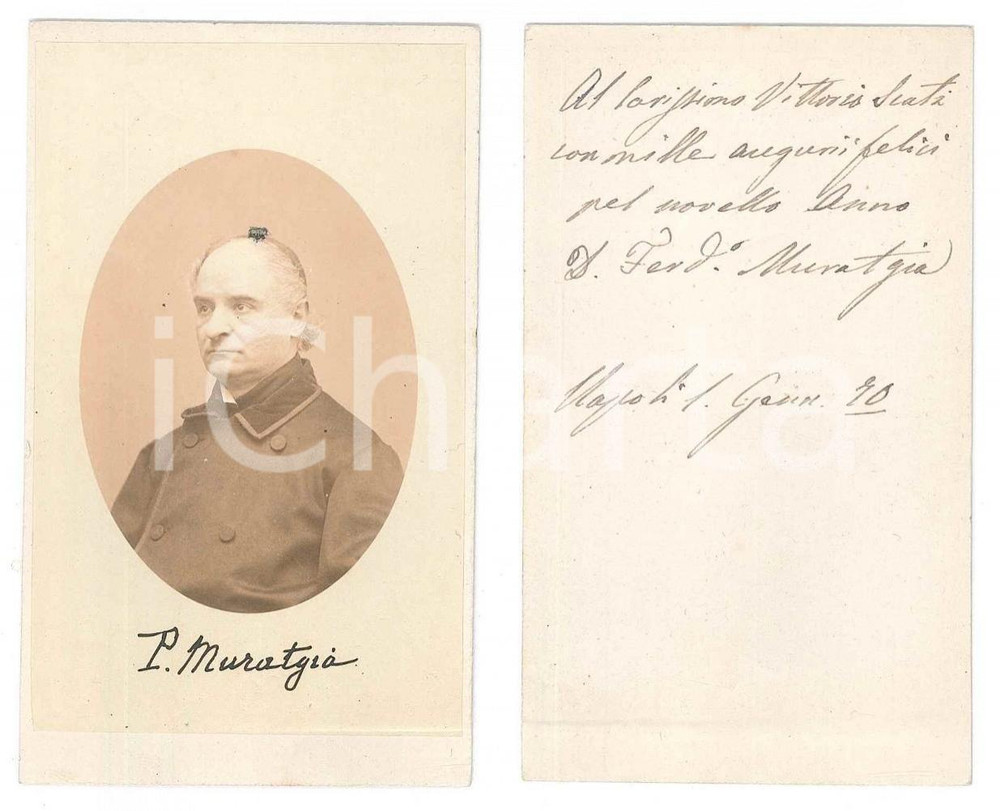 P. Muratgia
Al Carissimo Vittorio
con mille augurii felici
pel novello Anno
D. Ferd.o Muratgia
Napoli 1. Genn. 70
iCharta